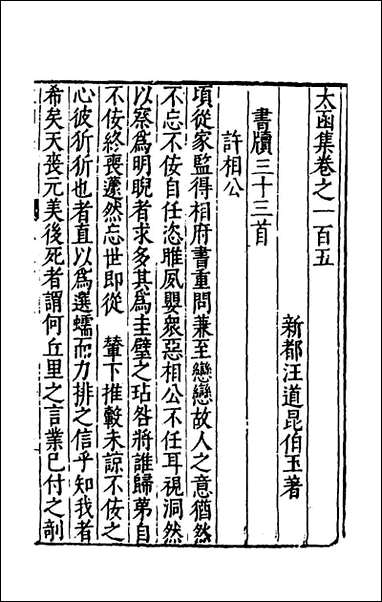 太函集卷之一百五
新都汪道昆伯玉著
書牘三十三首
許相公
頃從家監得相府書重問蒹至戀戀故人之意猶然
不忘不佞自任恣睢夙嬰衆惡相公不任耳視洞然
以察爲明睨者求多其爲圭璧之玷咎將誰歸苐自
不佞終喪邍然忘世即從　輦下推轂未諒不佞之
心彼狺狺也者直以爲選蠕而力排之信乎知我者
希矣天喪元美後死者謂何丘里之言業已付之剞